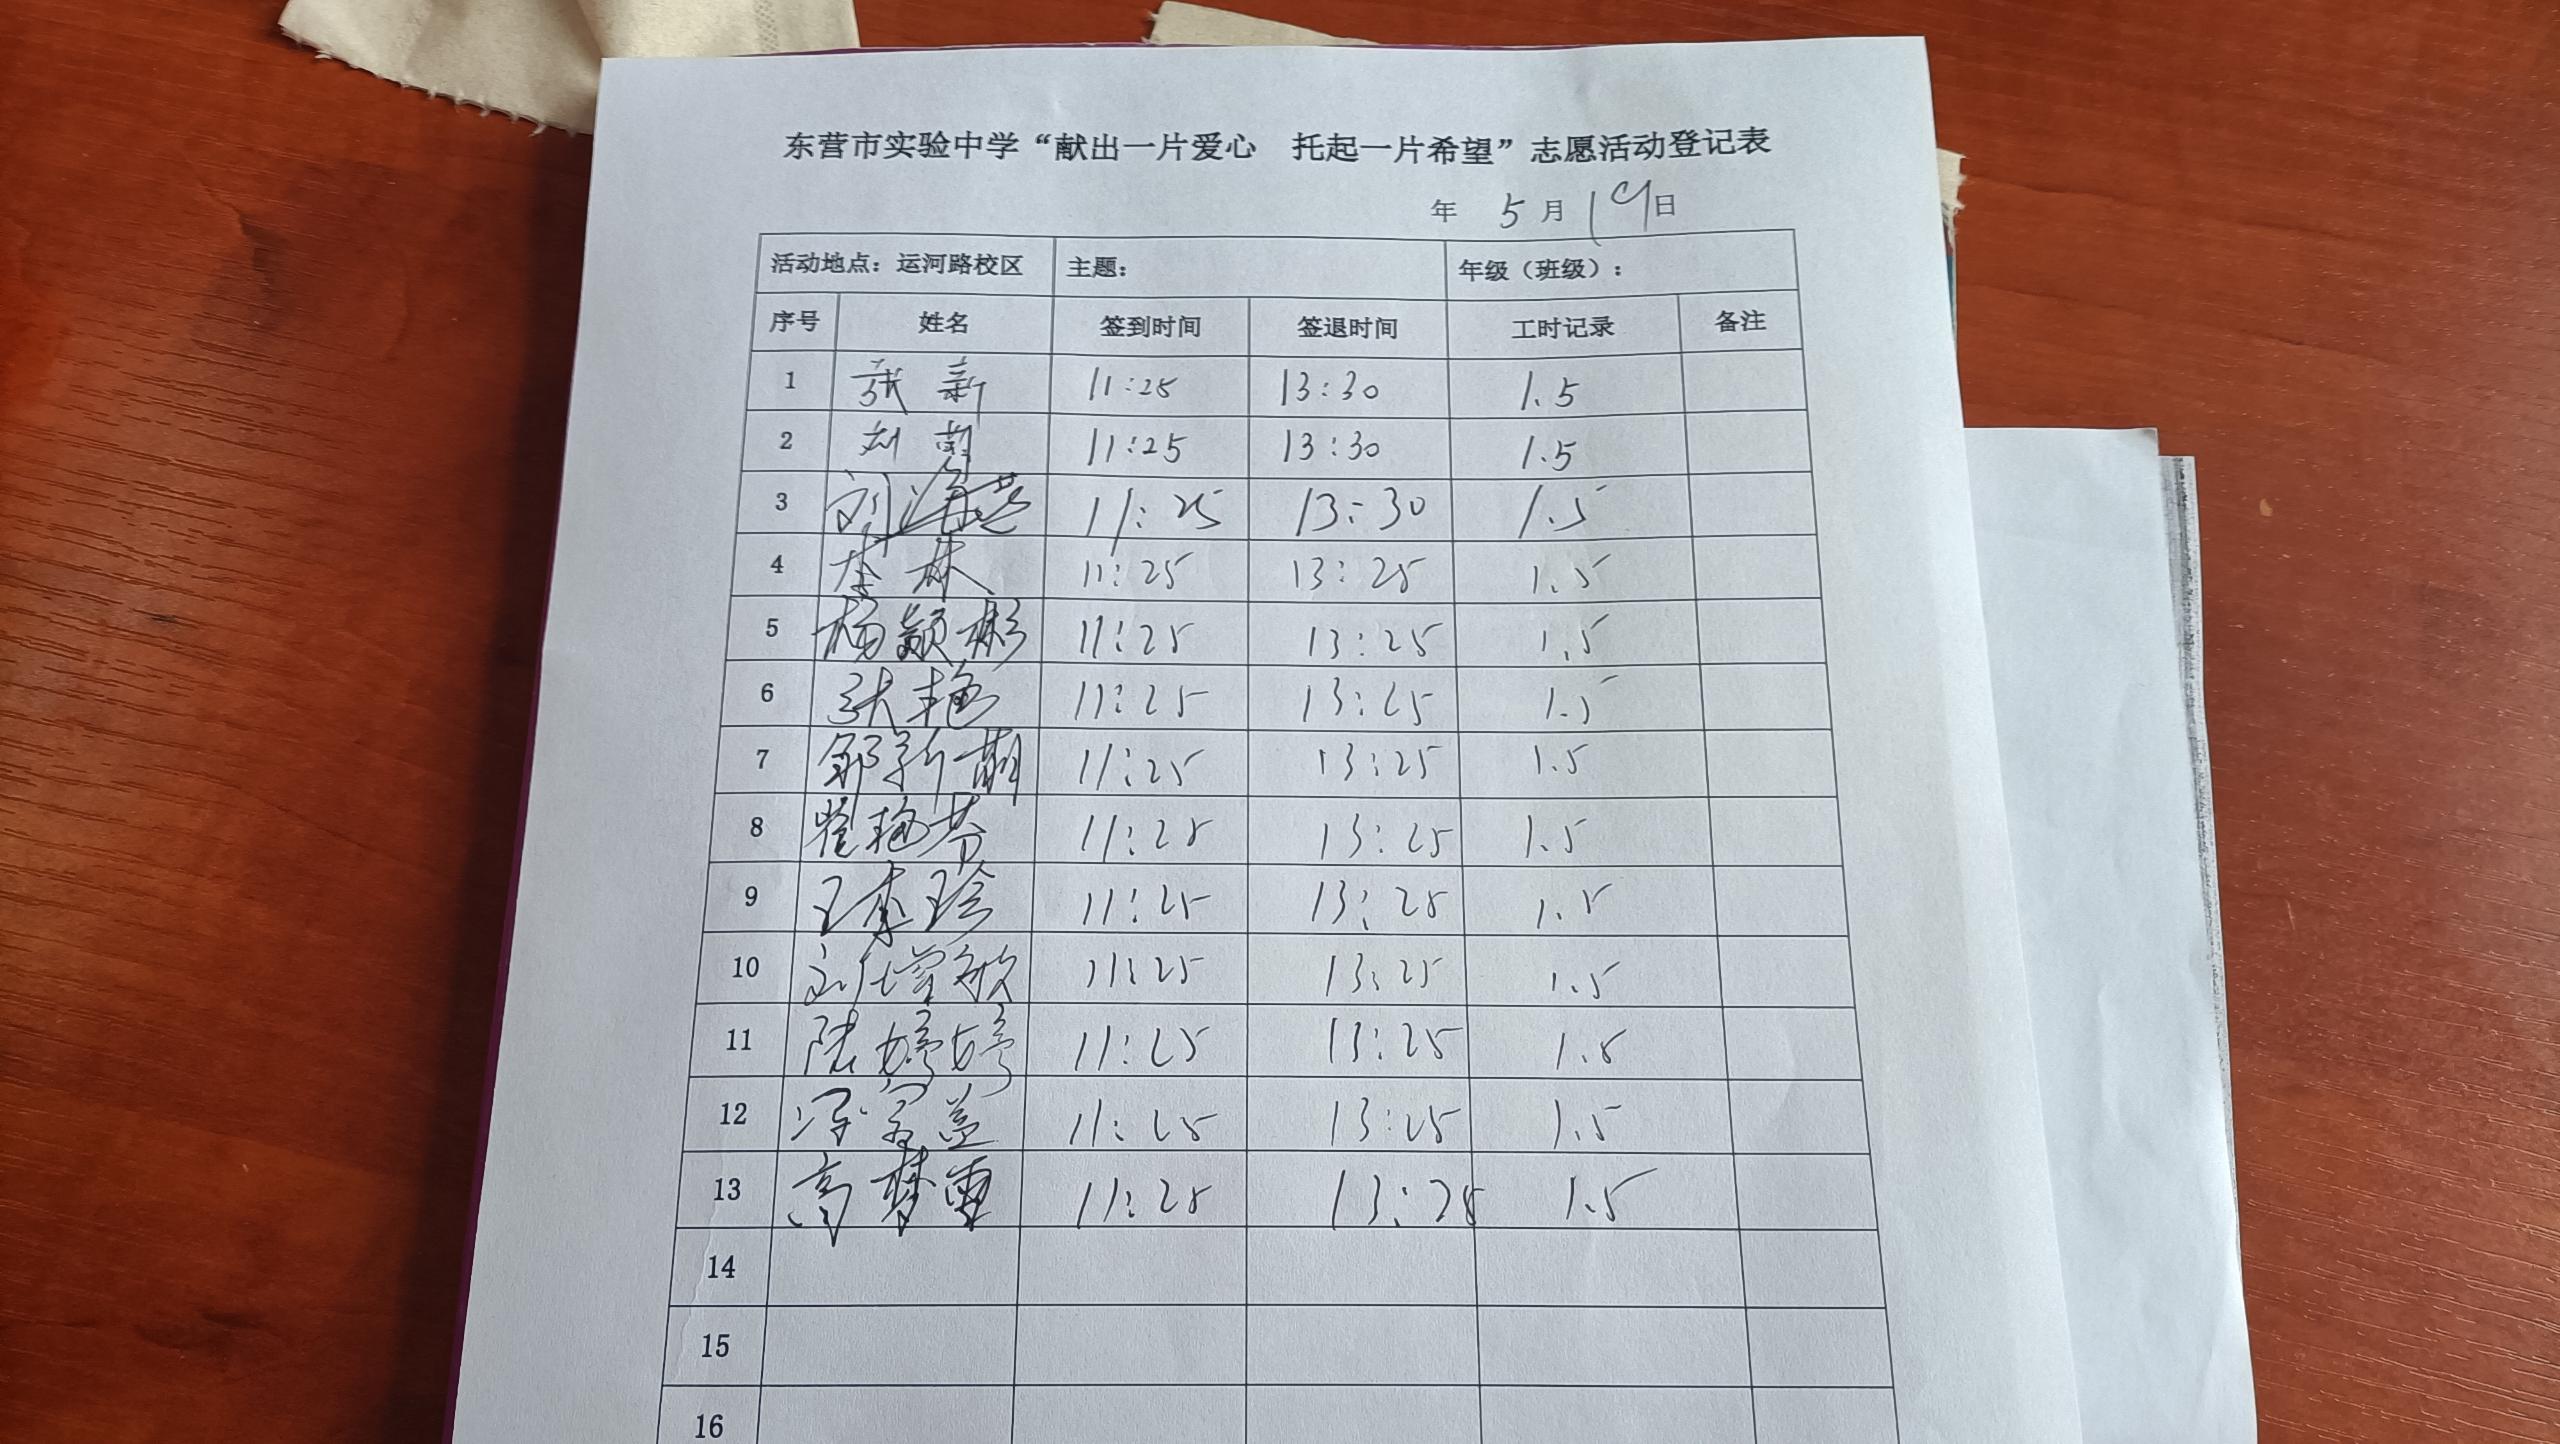 东营市实验中学“献出一片爱心 托起一片希望”志愿活动登记表
年 5月19日
活动地点：运河路校区 主题： 年级（班级）：
序号 姓名 签到时间 签退时间 工时记录 备注
1 张新 11:25 13:30 1.5
2 刘 11:25 13:30 1.5
3 刘海燕 11:25 13:30 1.5
4 李林 11:25 13:25 1.5
5 杨颖彬 11:25 13:25 1.5
6 张艳 11:25 13:25 1.5
7 邹新萌 11:25 13:25 1.5
8 翟艳芬 11:25 13:25 1.5
9 王李珍 11:25 13:25 1.5
10 刘增敏 11:25 13:25 1.5
11 陆婷婷 11:25 13:25 1.5
12 11:25 13:25 1.5
13 高梦雷 11:25 13:25 1.5
14
15
16